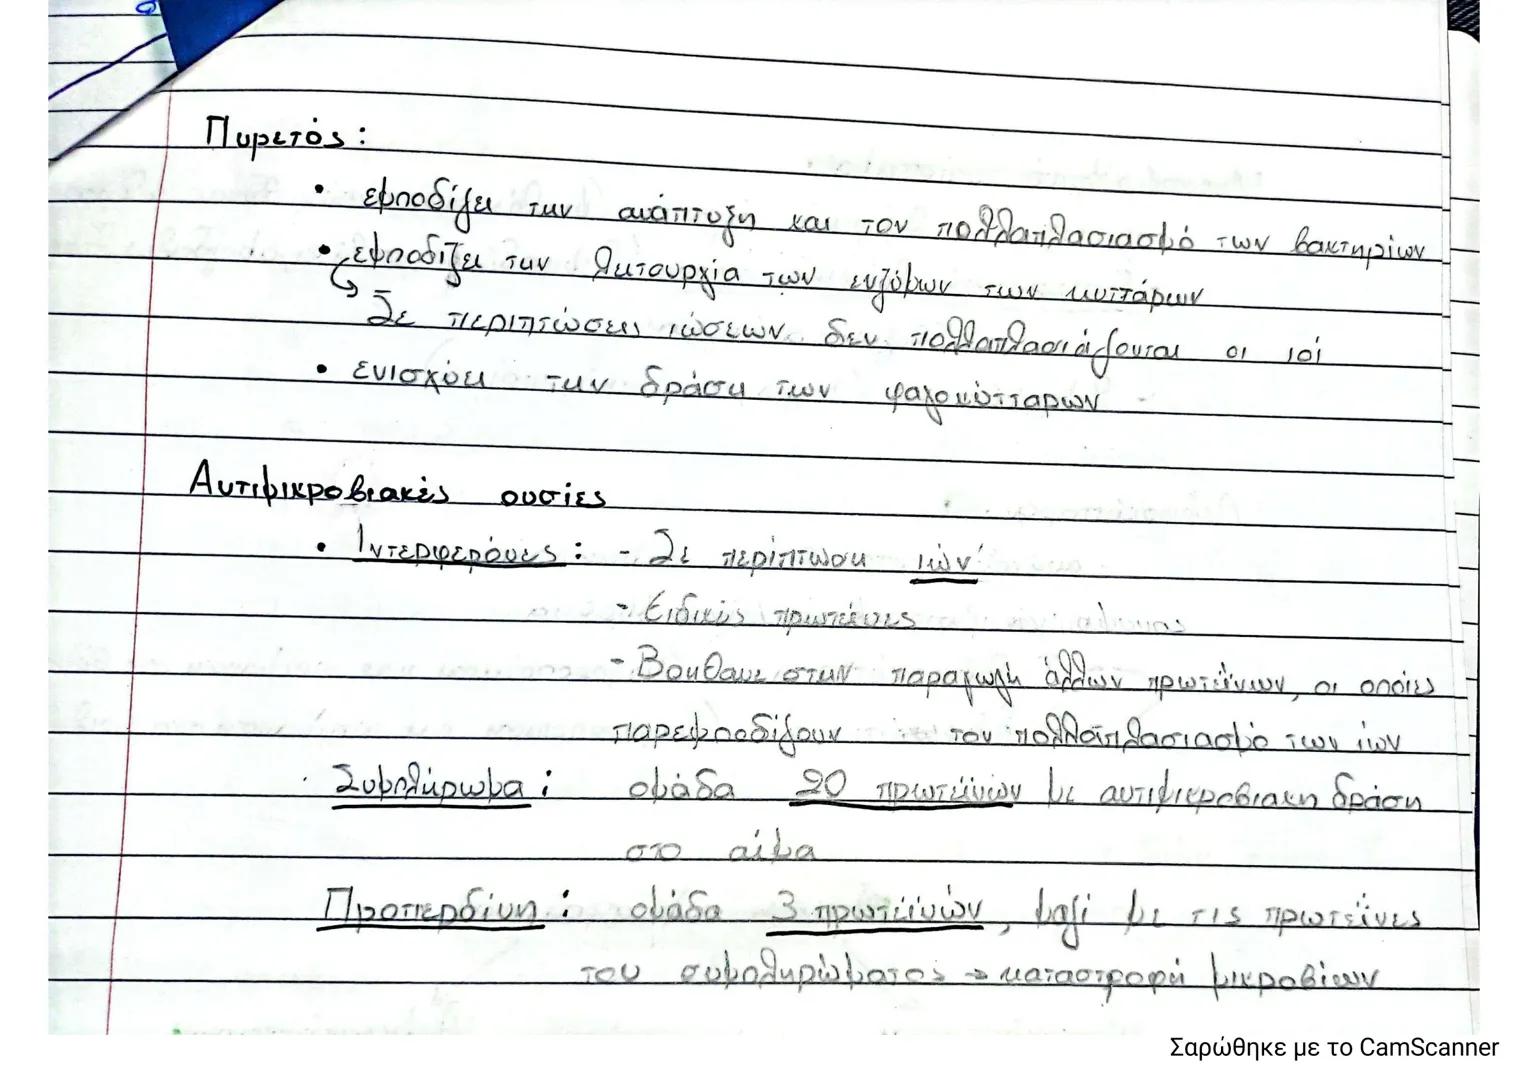 Πυρετός :
• εμποδίζει την ανάπτυξη και τον πολλαπλασιασμό των βακτηρίων
• εμποδίζει την λειτουργία των ενζύμων των κυττάρων
Σε περιπτώσεις ιώσεων δεν πολλαπλασιάζονται οι ιοί
• ενισχύει την δράση των φαγοκύτταρων
Αντιμικροβιακές ουσίες
• Ιντερφερόνες : - Σε περίπτωση ιών
- Ειδικές πρωτεΐνες
- Βοηθάνε στην παραγωγή άλλων πρωτεϊνων, οι οποίες
παρεμποδίζουν τον πολλαπλασιασμό των ιων
Συμπλήρωμα : ομάδα 20 πρωτεϊνών με αντιμικροβιακη δράση
στο αίμα
Προπερδίνη : ομάδα 3 πρωτεϊνών, μαζί με τις πρωτεΐνες
του συμπληρώματος → καταστροφή μικροβίων
Σαρώθηκε με το CamScanner